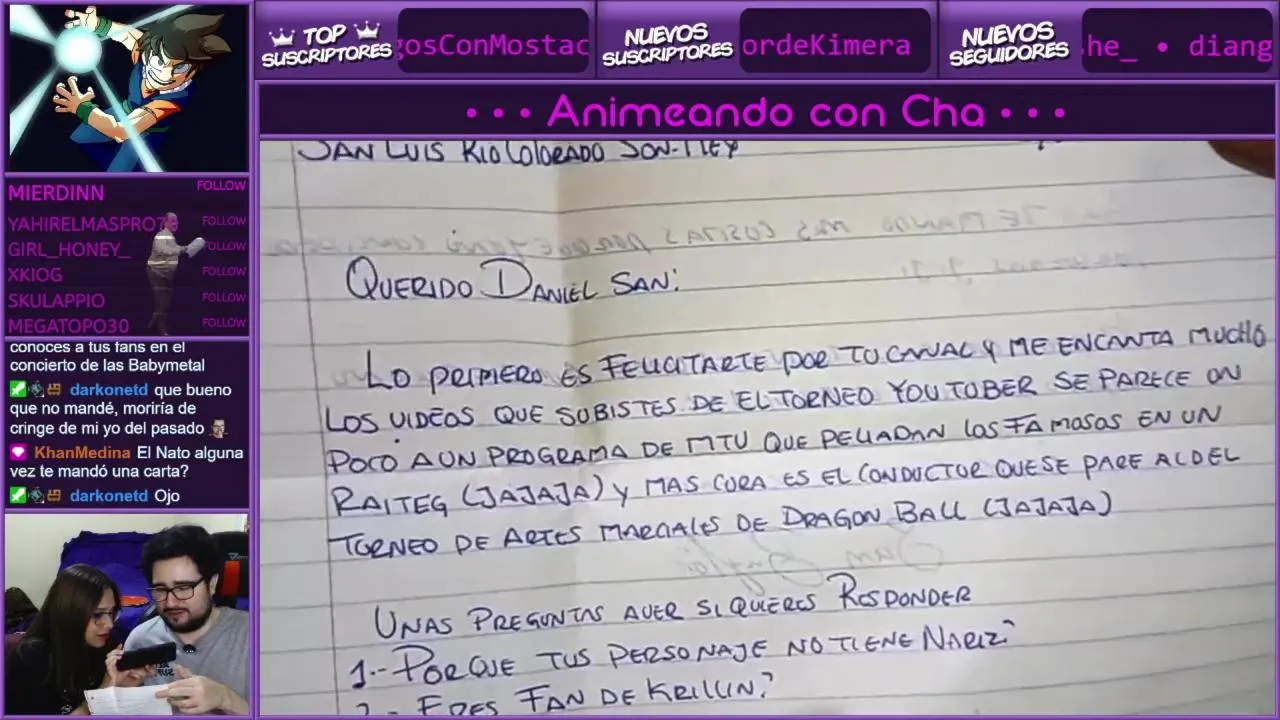 TOP
SUSCRIPTORES
gosConMostac
NUEVOS
SUSCRIPTORES
ordeKimera
NUEVOS
SEGUIDORES
he_ • diang
• • • Animeando con Cha • • •
MIERDINN FOLLOW
YAHIRELMASPRO78 FOLLOW
GIRL_HONEY_ FOLLOW
XKIOG FOLLOW
SKULAPPIO FOLLOW
MEGATOPO30 FOLLOW
conoces a tus fans en el
concierto de las Babymetal
darkonetd que bueno
que no mandé, moriría de
cringe de mi yo del pasado
KhanMedina El Nato alguna
vez te mandó una carta?
darkonetd Ojo
SAN LUIS RIO COLORADO SON-MEX
QUERIDO DANIEL SAN:
LO PRIMERO ES FELICITARTE POR TU CANAL Y ME ENCANTA MUCHO
LOS VIDEOS QUE SUBISTES DE EL TORNEO YOUTUBER SE PARECE UN
POCO A UN PROGRAMA DE MTV QUE PELIABAN LOS FAMOSOS EN UN
RAITEG (JAJAJA) Y MAS CURA ES EL CONDUCTOR QUE SE PARE AL DEL
TORNEO DE ARTES MARCIALES DE DRAGON BALL (JAJAJA)
UNAS PREGUNTAS AVER SI QUIERES RESPONDER
1.- PORQUE TUS PERSONAJE NO TIENE NARIZ?
2.- ERES FAN DE KRILLIN?